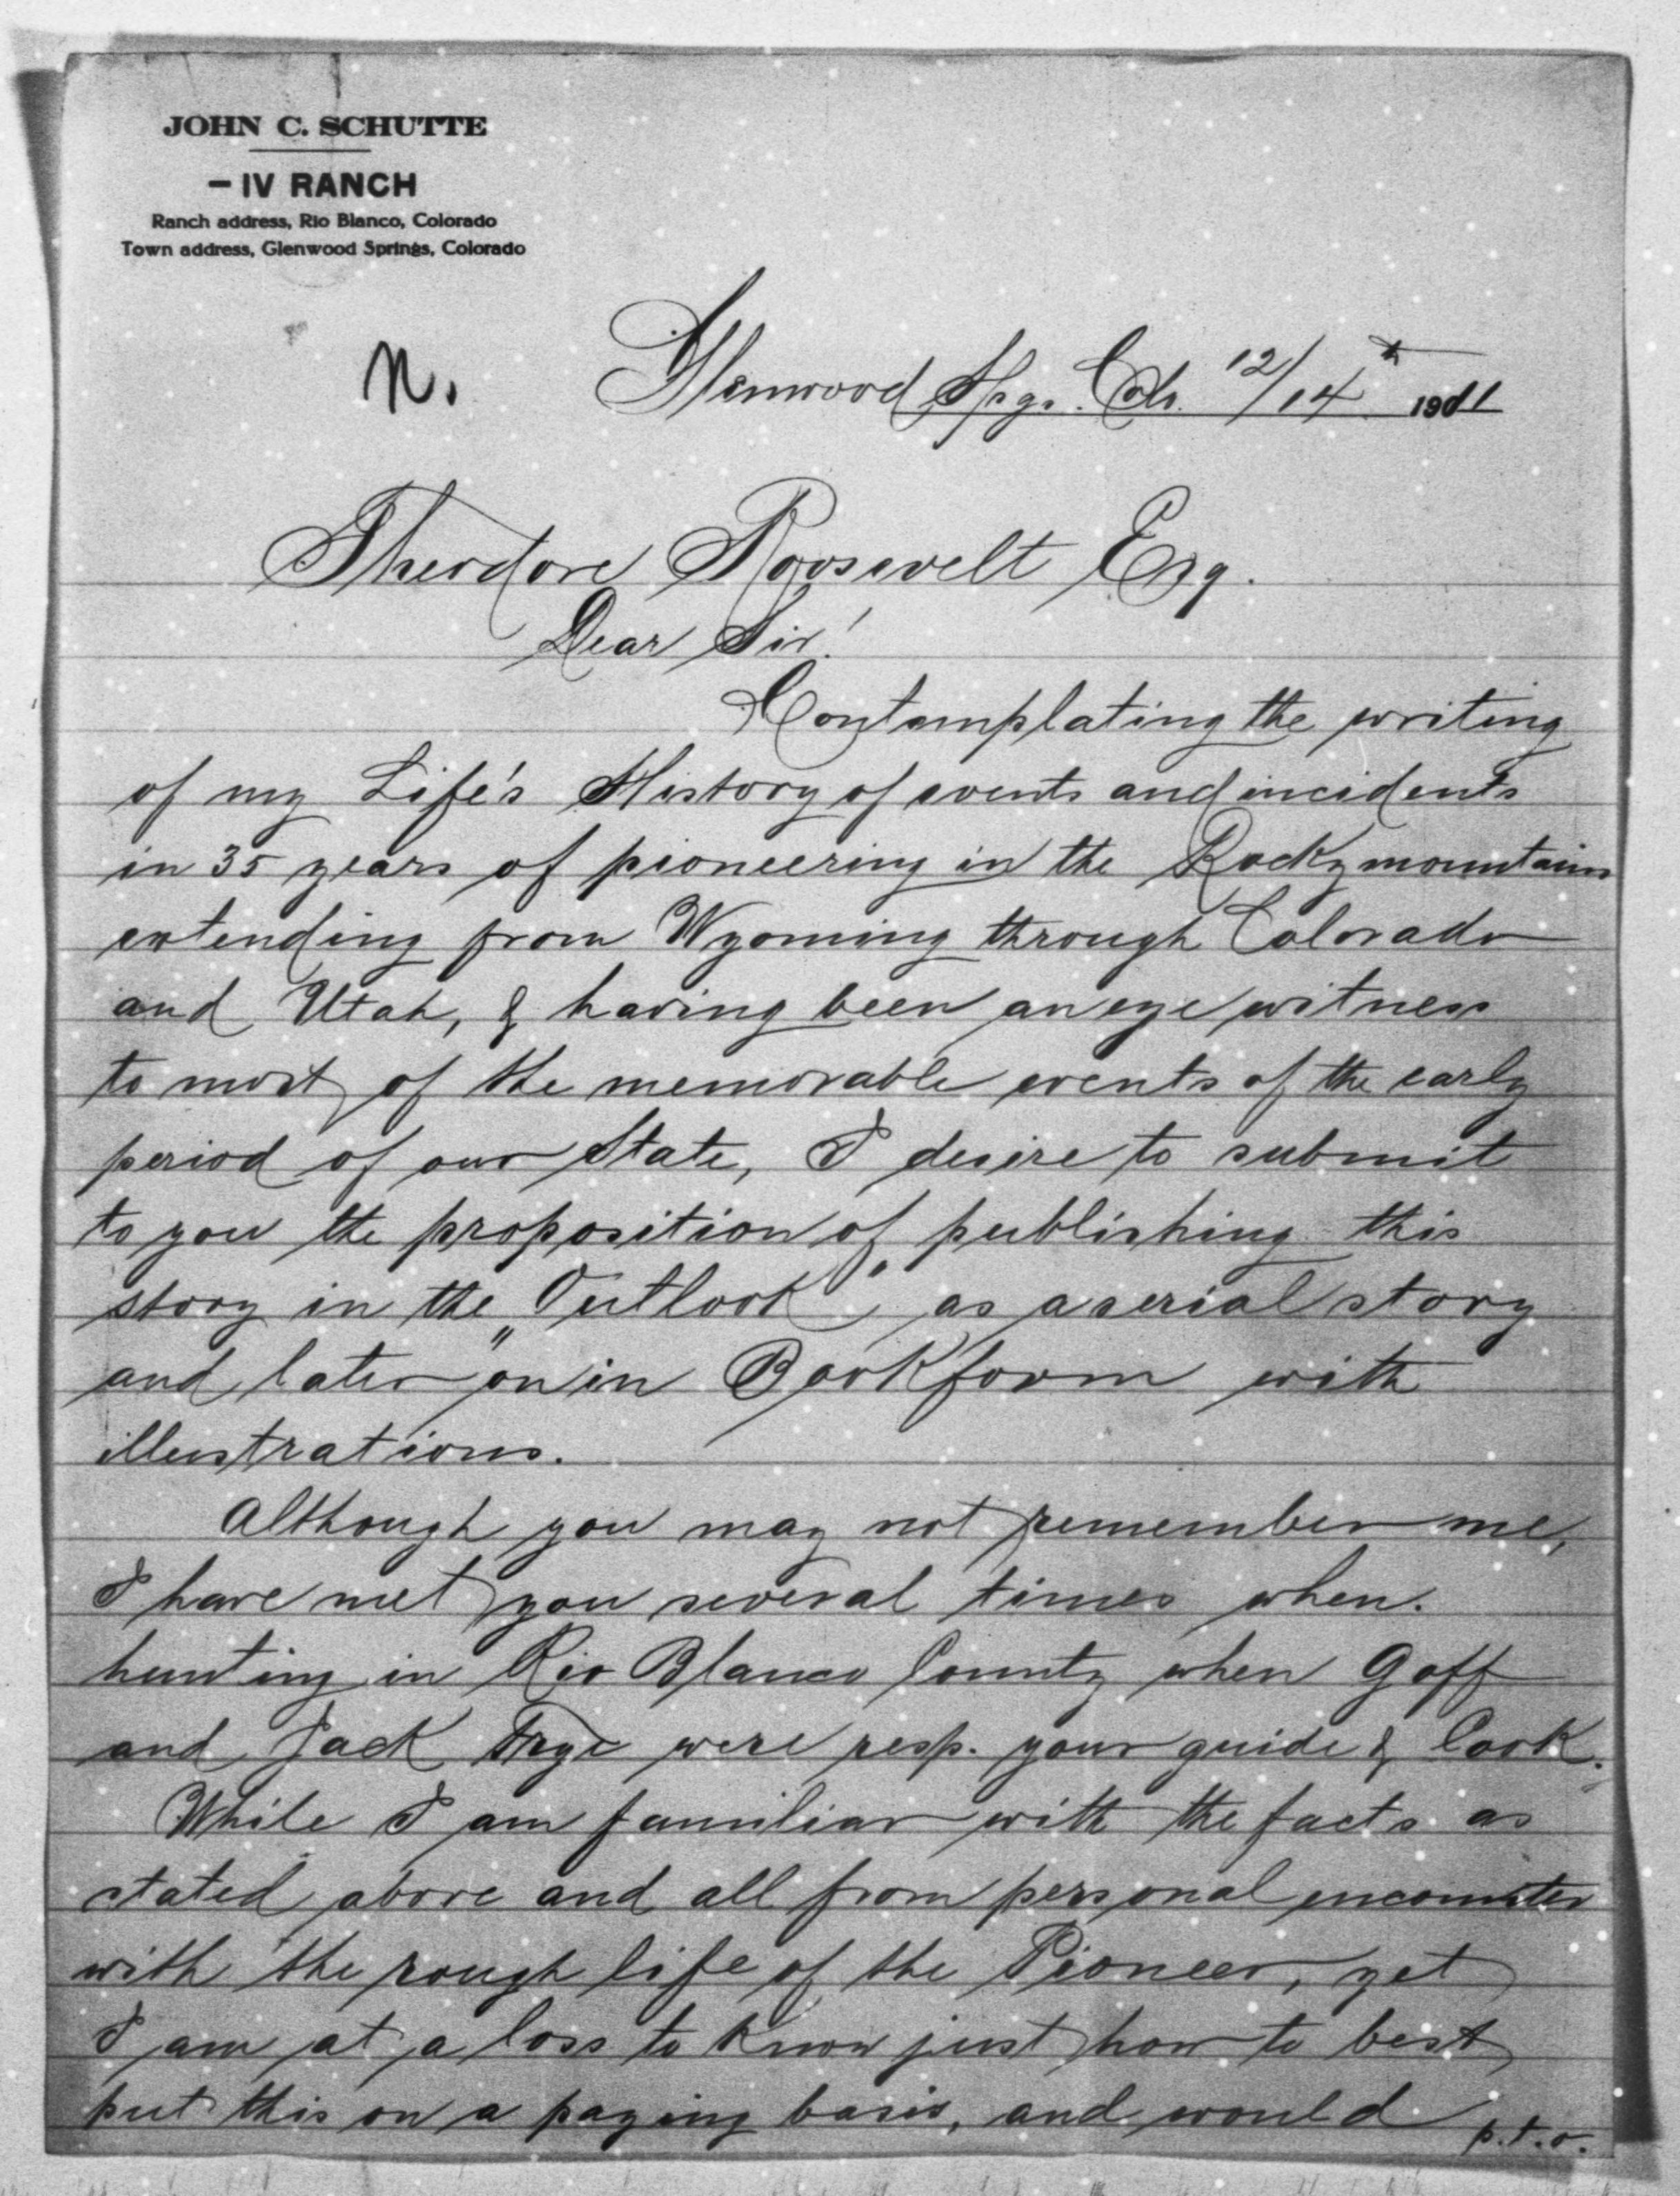 JOHN C. SCHUTTE
– IV RANCH
Ranch address, Rio Blanco, Colorado
Town address, Glenwood Springs, Colorado
N. Glenwood Spgs. Colo. 12/14th 1911
Theodore Roosevelt Esq.
Dear Sir!
Contemplating the writing
of my Life's History of events and incidents
in 35 years of pioneering in the Rocky mountains
extending from Wyoming through Colorado
and Utah, & having been an eye witness
to most of the memorable events of the early
period of our State, I desire to submit
to you the proposition of publishing this
story in the „Outlook", as a serial story
and later on in Bookform with
illustrations.
Although you may not remember me,
I have met you several times when.
hunting in Rio Blanco County when Goff
and Jack Frye were resp. your guide & Cook.
While I am familiar with the facts as
stated above and all from personal encounter
with the rough life of the Pioneer, yet
I am at a loss to know just how to best
put this on a paying basis, and would
p.t.o.